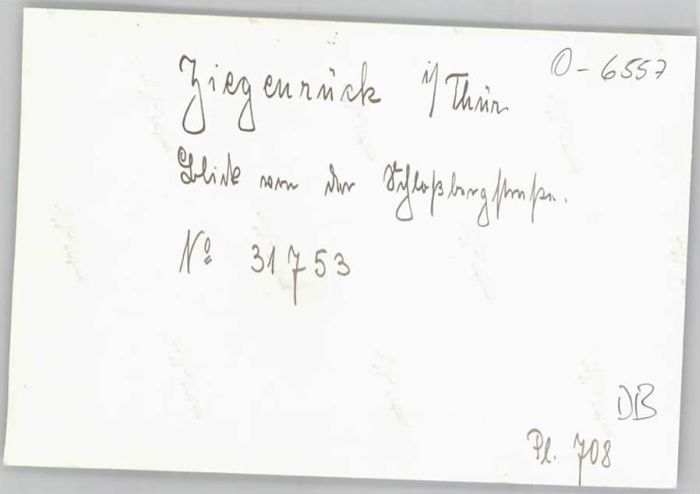 O-6557
Ziegenrück i/Thür.
Blick von der Schloßbergstraße.
Nº 31753
DB
Pl. 708